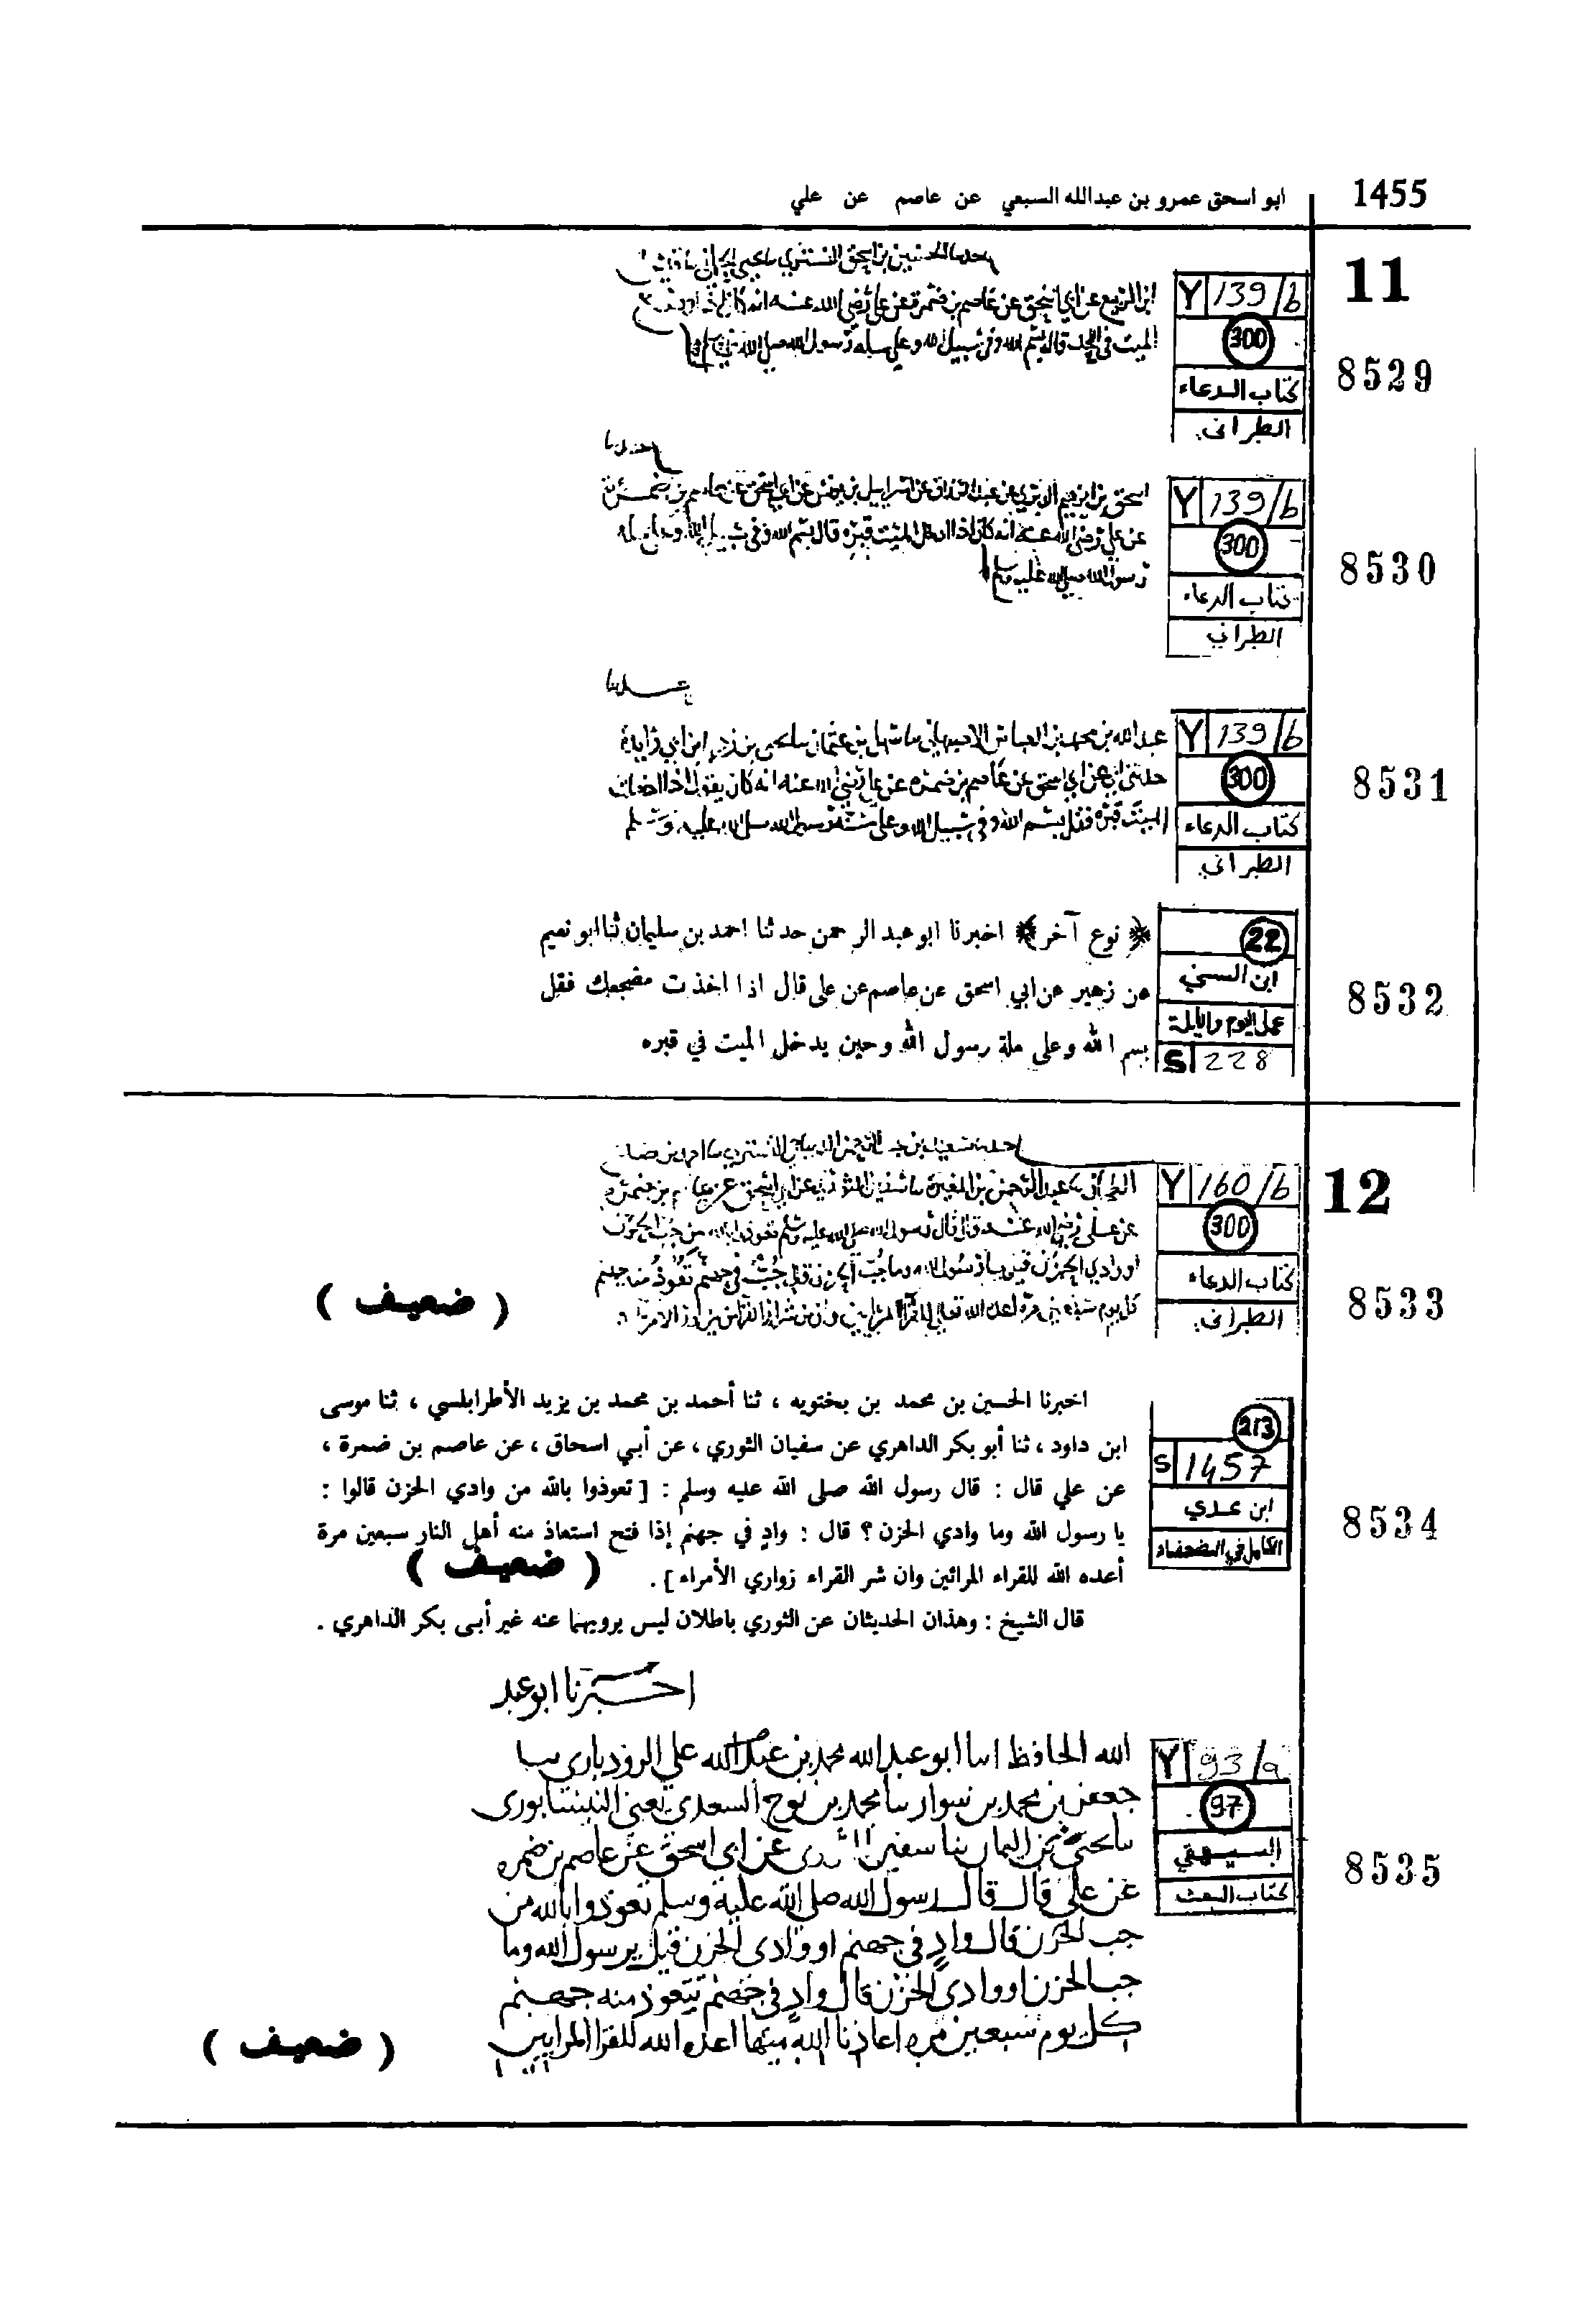 1455
ابو اسحق عمرو بن عبدالله السبعي عن عاصم عن علي
11
Y 139/b
300
كتاب الدعاء
الطبراني
8529
حدثنا الحسين بن اسحق التستري
عن عاصم بن ضمرة عن علي رضي الله عنه انه كان
الميت في اللحد قال بسم الله وفي سبيل الله وعلى ملة رسول الله صلى الله
Y 139/b
300
كتاب الدعاء
الطبراني
8530
حدثنا
اسحق بن ابرهيم الدبري عن عبد الرزاق عن اسرايل بن يونس عن ابي اسحق عن عاصم بن ضمرة
عن علي رضي الله عنه انه كان اذا ادخل الميت قبره قال بسم الله وفي سبيل الله وعلى مله
رسول الله صلى الله عليه وسلم
Y 139/b
300
كتاب الدعاء
الطبراني
8531
حدثنا
عبد الله بن محمد بن العباس الاصبهاني سا سهل بن عثمان سا يحيى بن زكريا ابن ابي زايدة
حدثني ابي عن ابي اسحق عن عاصم بن ضمره عن علي رضي الله عنه انه كان يقول اذا
الميت قبره فقل بسم الله وفي سبيل الله وعلى رسول الله صلى الله عليه وسلم
22
ابن السني
عمل اليوم والليلة
S 228
8532
﴿ نوع آخر ﴾ اخبرنا ابو عبد الرحمن حدثنا احمد بن سليمان ثنا ابو نعيم
عن زهير عن ابي اسحق عن عاصم عن على قال اذا اخذت مضجعك فقل
بسم الله وعلى ملة رسول الله وحين يدخل الميت في قبره
12
Y 160/b
300
كتاب الدعاء
الطبراني
8533
عبد الرحمن بن المغيرة سا سفين الثوري عن ابي اسحق عن عاصم بن ضمره
عن علي رضي الله عنه قال قال رسول الله صلى الله عليه وسلم تعوذوا بالله من جب الحزن
او وادي الحزن قيل يا رسول الله وما جب الحزن قال جب في جهنم تعوذ منه جهنم
كل يوم سبعين مرة اعده الله تعالى للقراء المرايين
( ضعيف )
213
S 1457
ابن عدي
الكامل في الضعفاء
8534
اخبرنا الحسين بن محمد بن بختويه ، ثنا أحمد بن محمد بن يزيد الأطرابلسي ، ثنا موسى
ابن داود ، ثنا أبو بكر الداهري عن سفيان الثوري ، عن أبي اسحاق ، عن عاصم بن ضمرة ،
عن علي قال : قال رسول الله صلى الله عليه وسلم : [ تعوذوا بالله من وادي الحزن قالوا :
يا رسول الله وما وادي الحزن ؟ قال : وادٍ في جهنم إذا فتح استعاذ منه أهل النار سبعين مرة
أعده الله للقراء المرائين وان شر القراء زواري الأمراء ] .
( ضعيف )
قال الشيخ : وهذان الحديثان عن الثوري باطلان ليس يرويهما عنه غير أبي بكر الداهري .
Y 93/a
97
البيهقي
كتاب البعث
8535
اخبرنا ابو عبد
الله الحافظ اسا ابو عبد الله محمد بن عبد الله على الروذبارى سا
جعفر بن محمد بن سوار سا محمد بن نوح السعدي يعني النيسابورى
سا يحيى بن اليمان بنا سفين الثوري عن ابي اسحق عن عاصم بن ضمره
عن علي قال قال رسول الله صلى الله عليه وسلم تعوذوا بالله من
جب الحزن قال وادٍ في جهنم او وادى الحزن قيل يرسول الله وما
جب الحزن او وادي الحزن قال وادٍ في جهنم تتعوذ منه جهنم
كل يوم سبعين مره اعاذنا الله منها اعده الله للقرا المرايين
( ضعيف )